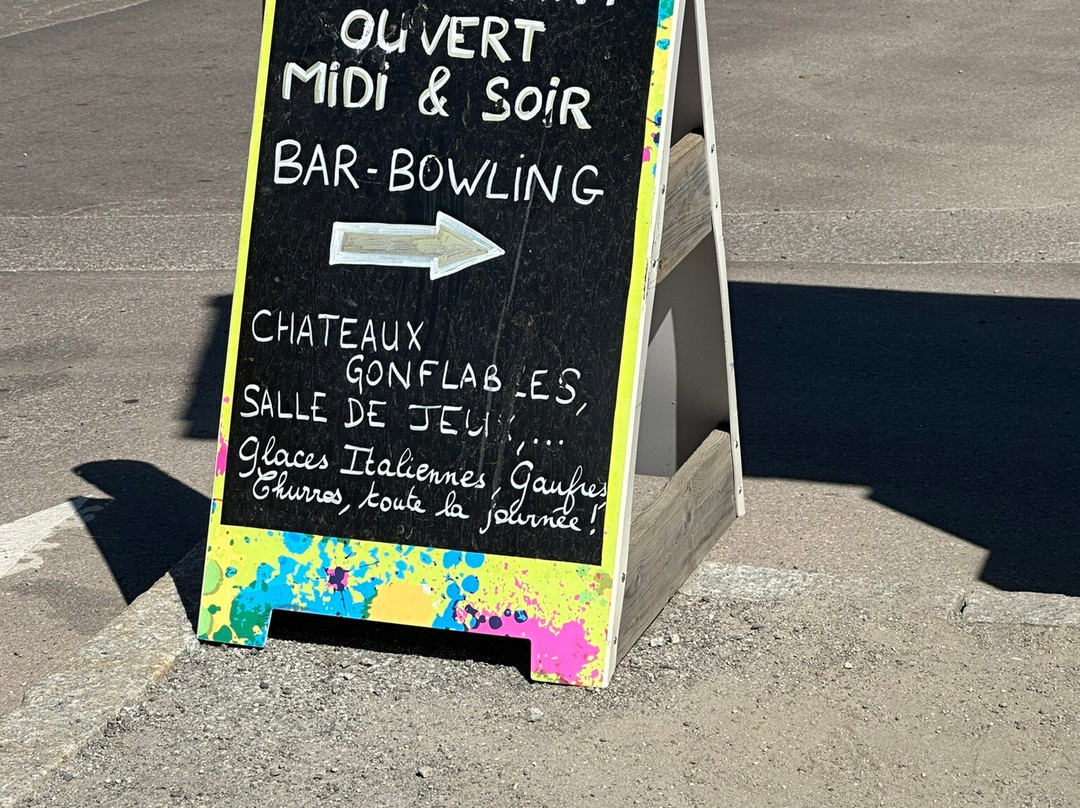 OUVERT
MIDI & SOIR
BAR-BOWLING
CHATEAUX
GONFLABLES,
SALLE DE JEUX,...
Glaces Italiennes, Gaufres
Churros, toute la journée!